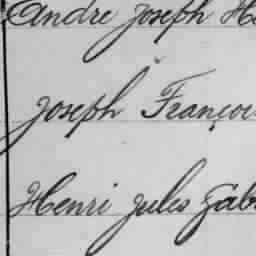 André Joseph H
Joseph Françoi
Henri Jules Gab